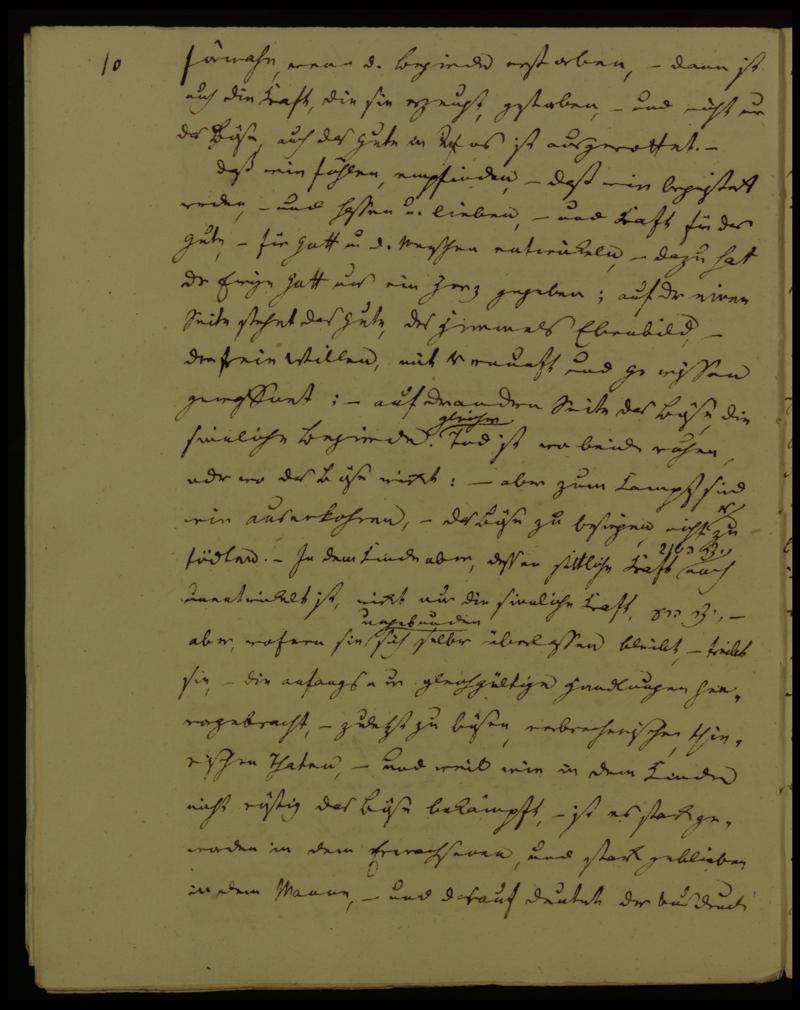 10
fürwahr, wenn d. Begierde erstorben, – dann ist
auch die Kraft, die sie erzeugt, gestorben, – und nicht nur
das Böse, auch das Gute in uns ist ausgerottet. –
daß wir fühlen, empfinden, – daß wir begeistert
werden, – und hassen u. lieben, – und Kraft für das
Gute, – für Gott u. d. Menschen entwickeln, – dazu hat
der Ewige Gott uns ein Herz gegeben; auf der einen
Seite stehet das Gute, des Himmels Ebenbild, –
der freie Willen, mit Vernunft und Gewissen
; – auf der andern Seite das Böse, die
sinnliche Begierde.
gleicher
Tod ist wo beide ruhen,
oder wo das Böse wirkt: – aber zum Kampf sind
wir auserkohren, – das Böse zu besiegen nicht zu
tödten. – In dem Kinde aber, dessen sittliche Kraft noch
unentwickelt ist, wirkt nur die sinnliche Kraft, –
ungebunden
aber, wofern sie sich selber überlassen bleibt, – treibt
sie, – die anfangs nur gleichgültige Handlungen her-
vorgebracht, – zuletzt zu bösen, verbrecherischen, thie-
rischen Thaten, – und weil wir in dem Kinde
nicht rüstig das Böse bekämpft, – ist es stark ge-
worden in dem Erwachsenen, und stark geblieben
in dem Manne, – und darauf deutet der Ausdruck